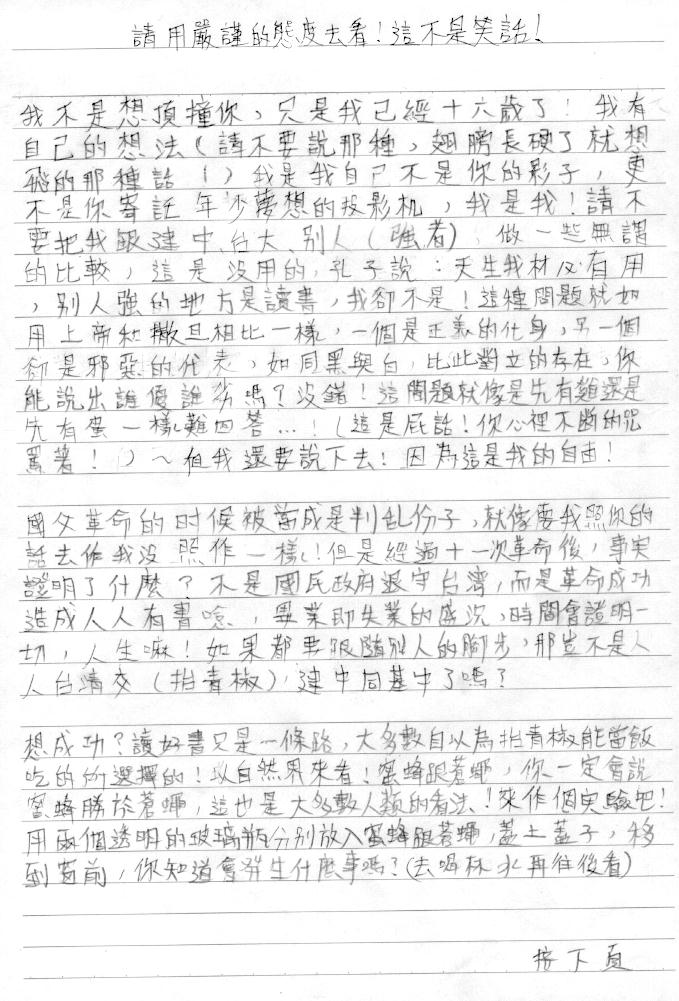 請用嚴謹的態度去看!這不是笑話!
我不是想頂撞你,只是我已經十六歲了!我有
自己的想法(請不要說那種,翅膀長硬了就想
飛的那種話!)我是我自己不是你的影子,更
不是你寄託年少夢想的投影机,我是我!請不
要把我跟建中、台大、別人(強者),做一些無謂
的比較,這是沒用的,孔子說:天生我材必有用
,別人強的地方是讀書,我卻不是!這種問題就如
用上帝和撒旦相比一樣,一個是正義的化身,另一個
卻是邪惡的代表,如同黑與白,比此對立的存在,你
能說出誰優誰劣嗎?沒錯!這問題就像是先有雞還是
先有蛋一樣難回答…!(這是屁話!你心裡不斷的咒
罵著!)~但我還要說下去!因為這是我的自由!
國父革命的时候被當成是判乱份子,就像要我照你的
話去作我沒照作一樣!但是經過十一次革命後,事实
證明了什麼?不是國民政府退守台灣,而是革命成功
造成人人有書唸,畢業即失業的盛況,時間會證明一
切,人生嘛!如果都要跟隨別人的腳步,那豈不是人
人台清交(抬青椒),建中同基中了嗎?
想成功?讀好書只是一條路,大多數自以為抬青椒能當飯
吃的所選擇的!以自然界來看!蜜蜂跟蒼蠅,你一定會說
蜜蜂勝於蒼蠅,這也是大多數人類的看法!來作個实驗吧!
用兩個透明的玻璃瓶分別放入蜜蜂跟蒼蠅,蓋上蓋子,移
到窗前,你知道會発生什麼事嗎?(去喝杯水再往後看)
接下頁